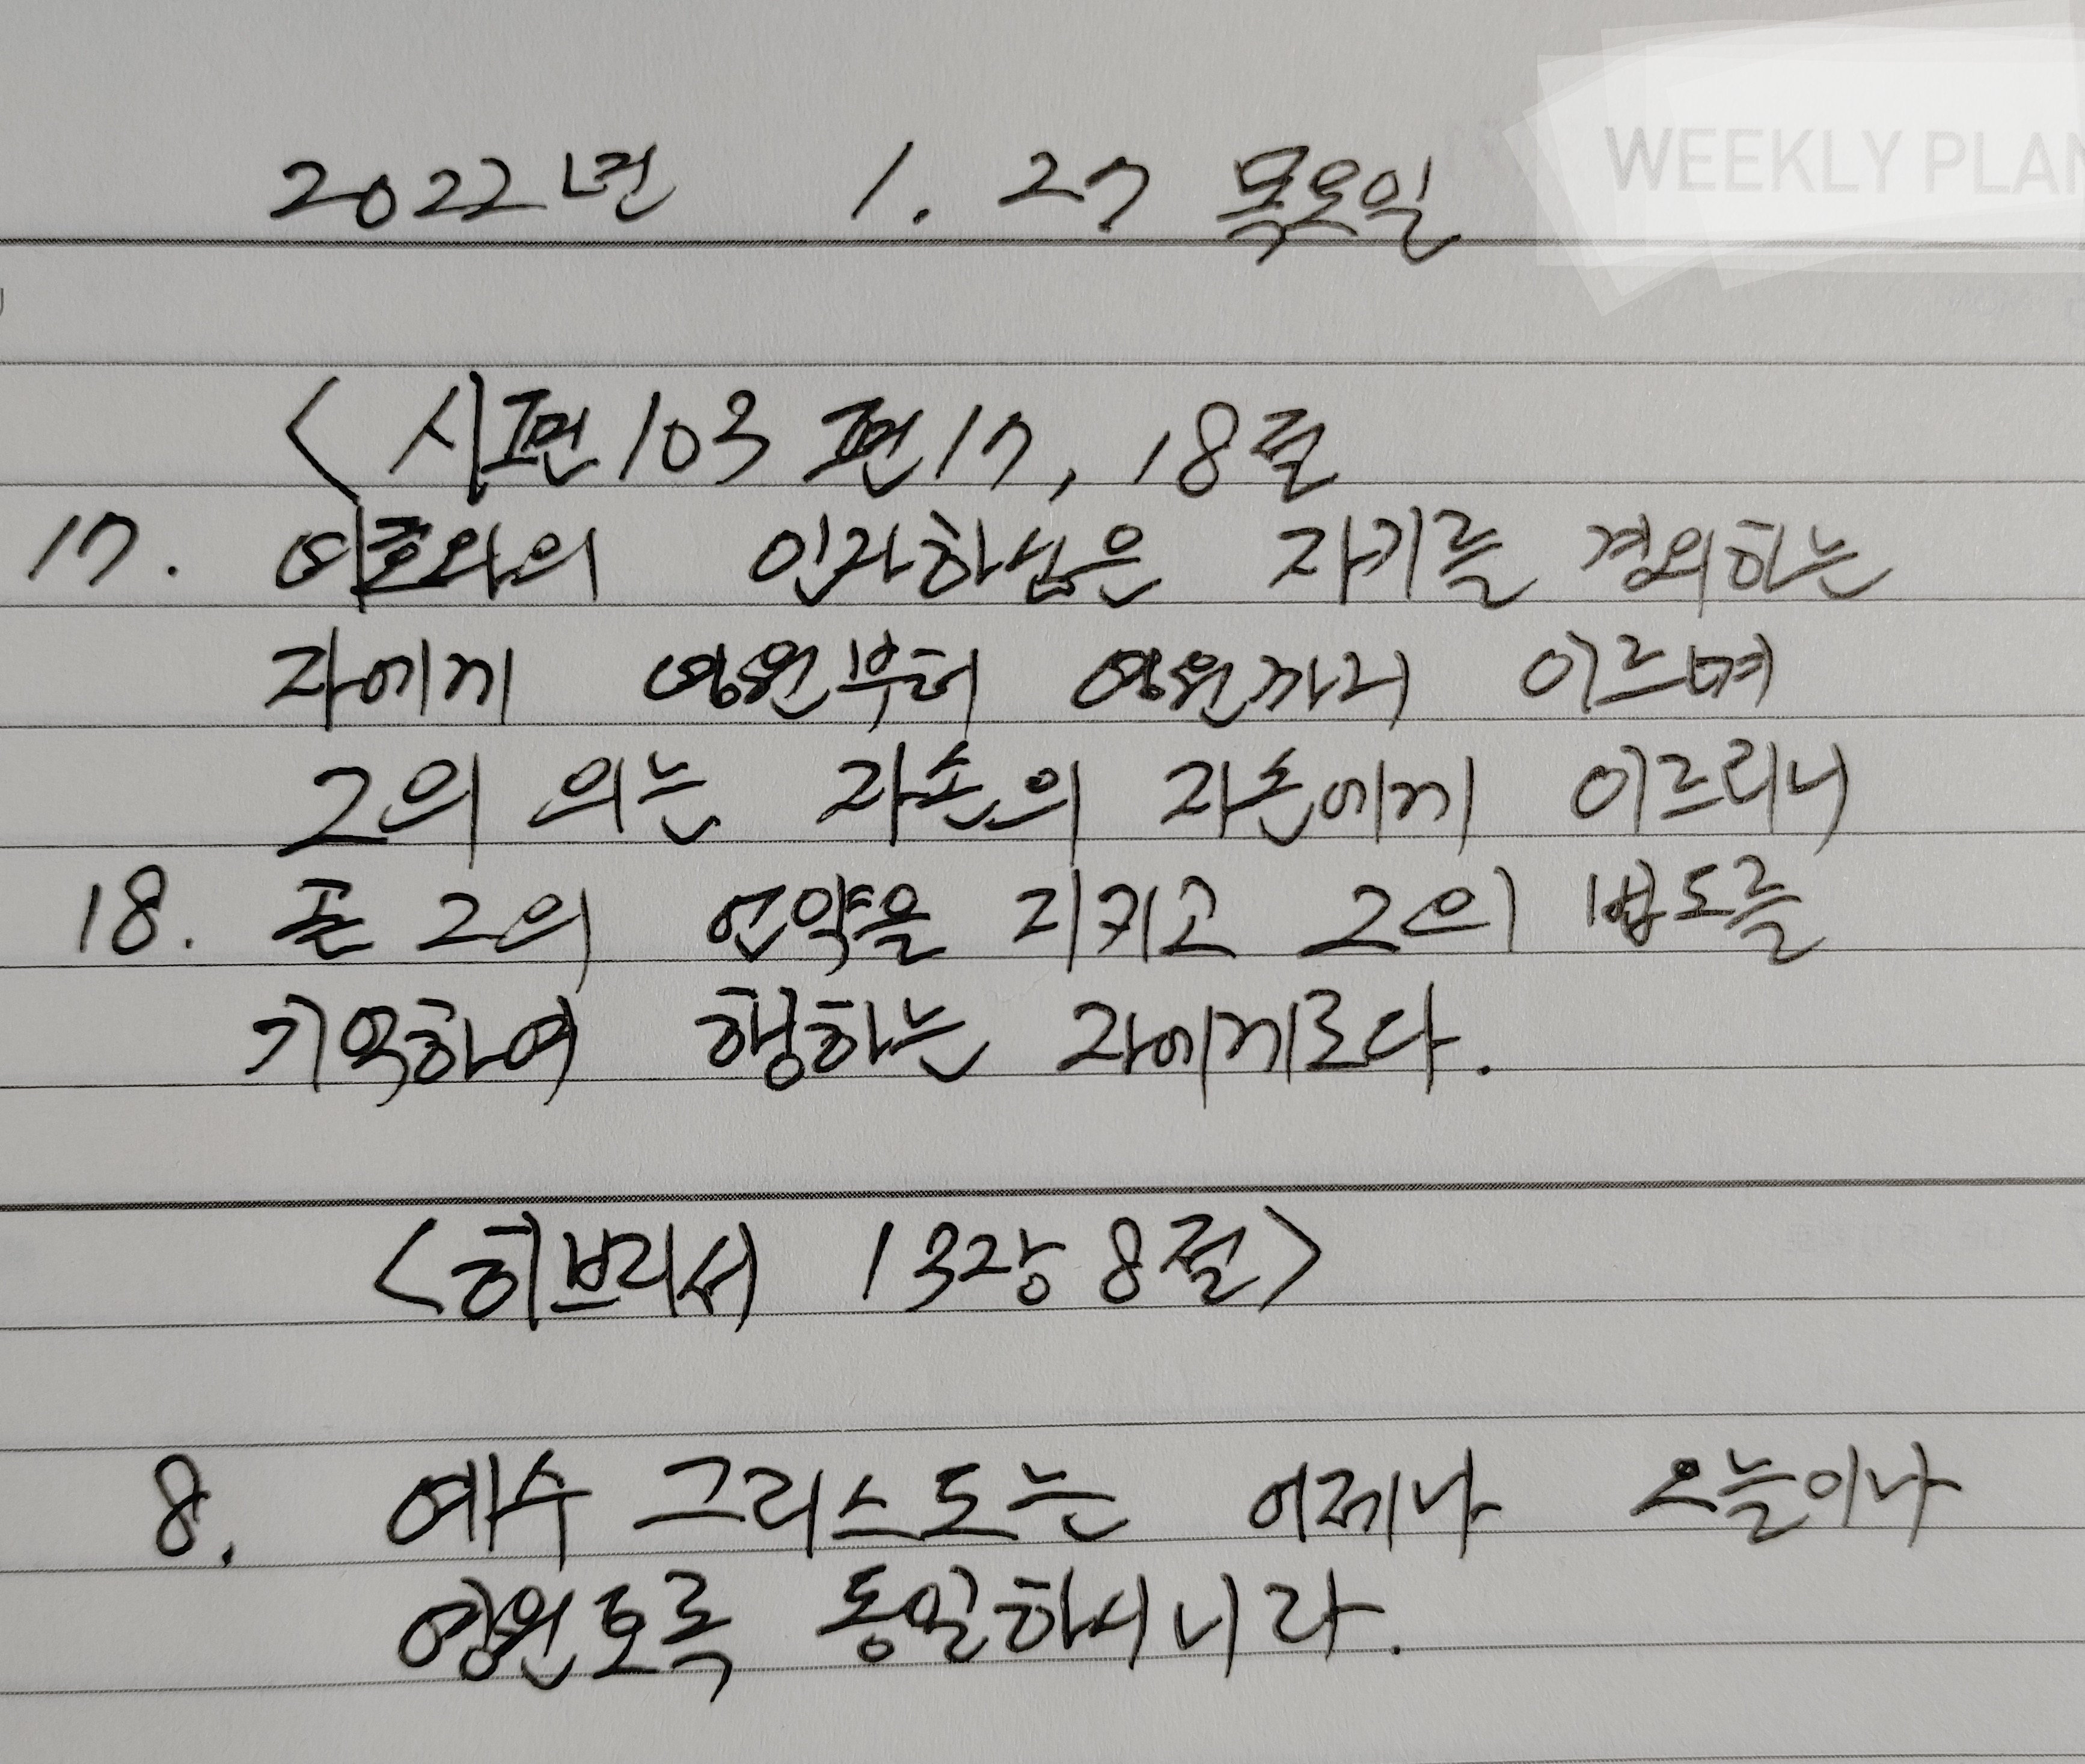 WEEKLY PLAN
2022년 1. 27 목요일
<시편103편17, 18절
17. 여호와의 인자하심은 자기를 경외하는
자에게 영원부터 영원까지 이르며
그의 의는 자손의 자손에게 이르리니
18. 곧 그의 언약을 지키고 그의 법도를
기억하여 행하는 자에게로다.
<히브리서 13장 8절>
8. 예수 그리스도는 어제나 오늘이나
영원토록 동일하시니라.